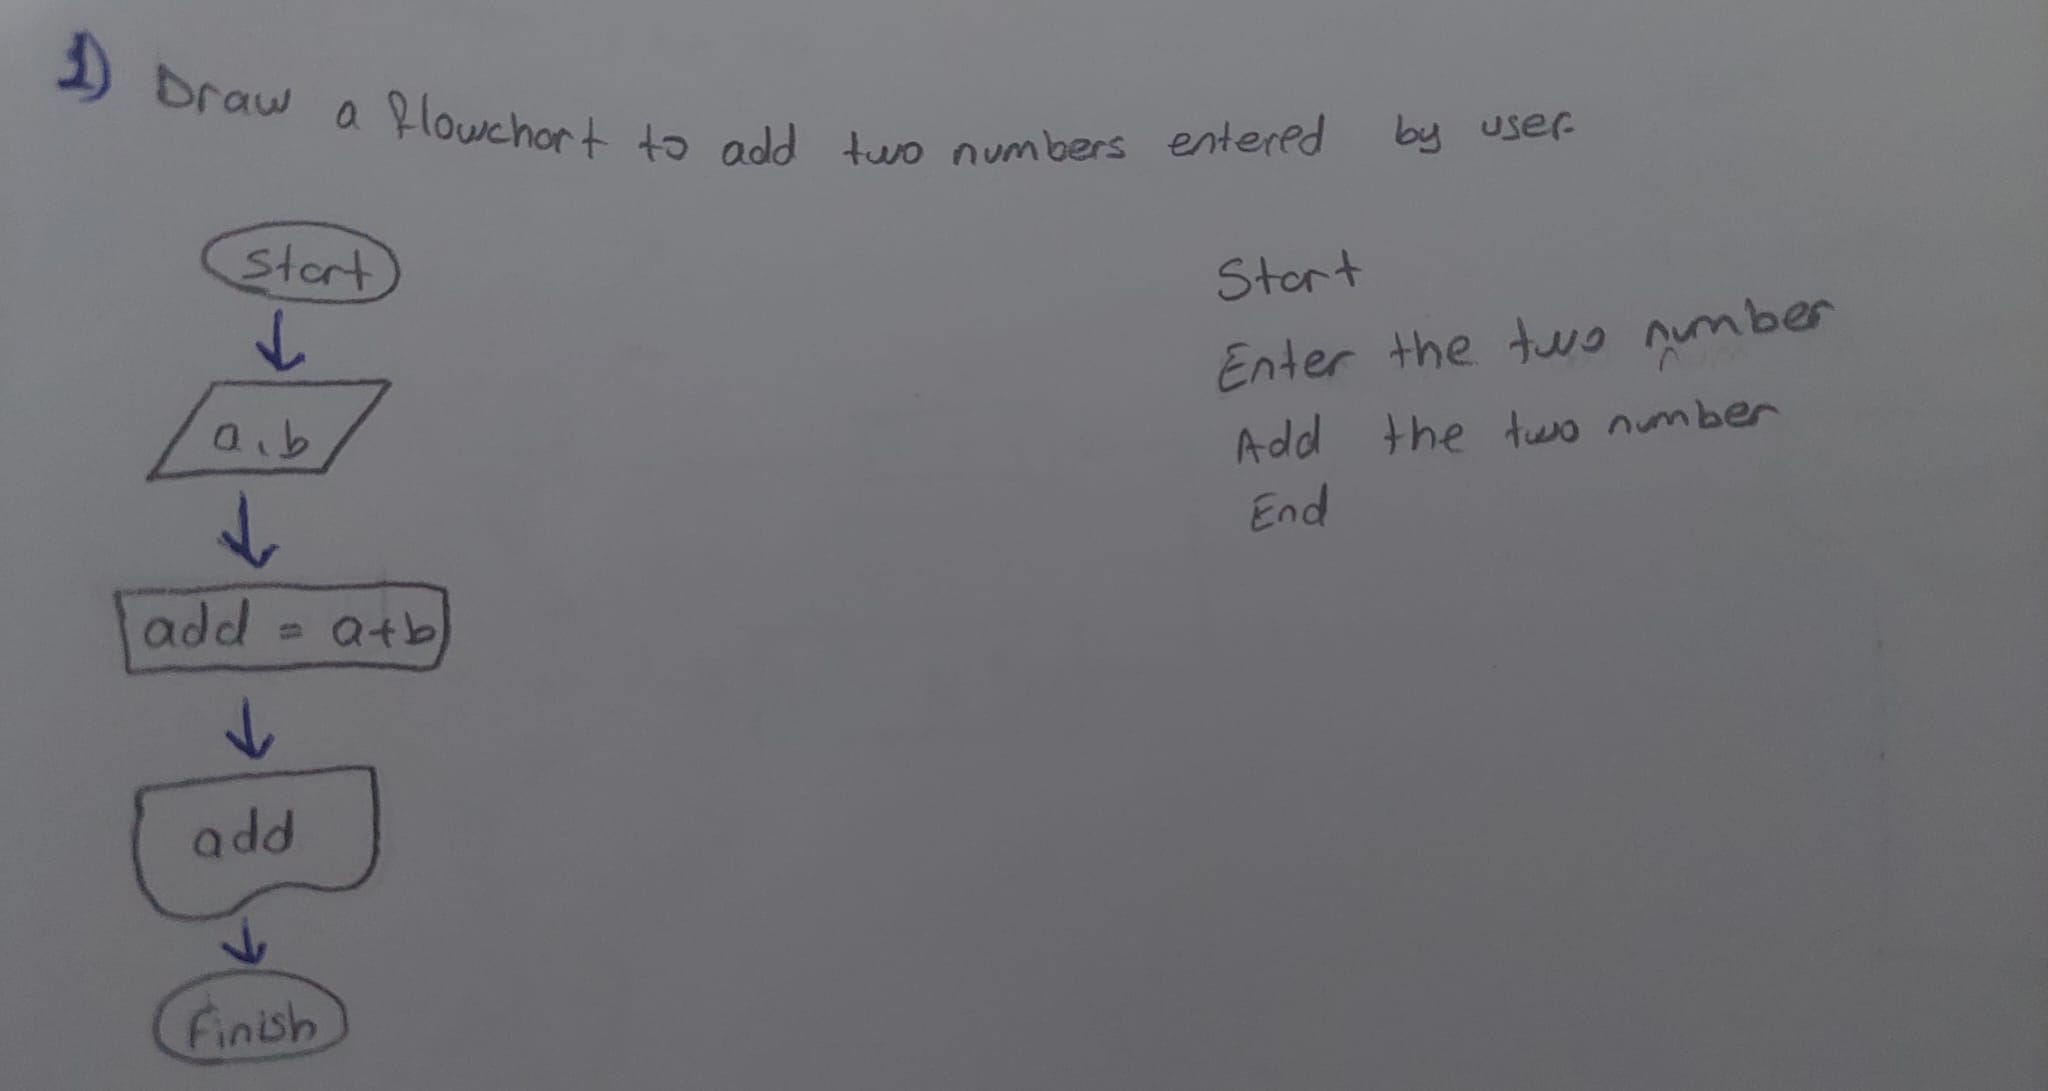 1) Draw a flowchart to add two numbers entered by user.
Start
a, b
add = a+b
add
Finish
Start
Enter the two number
Add the two number
End